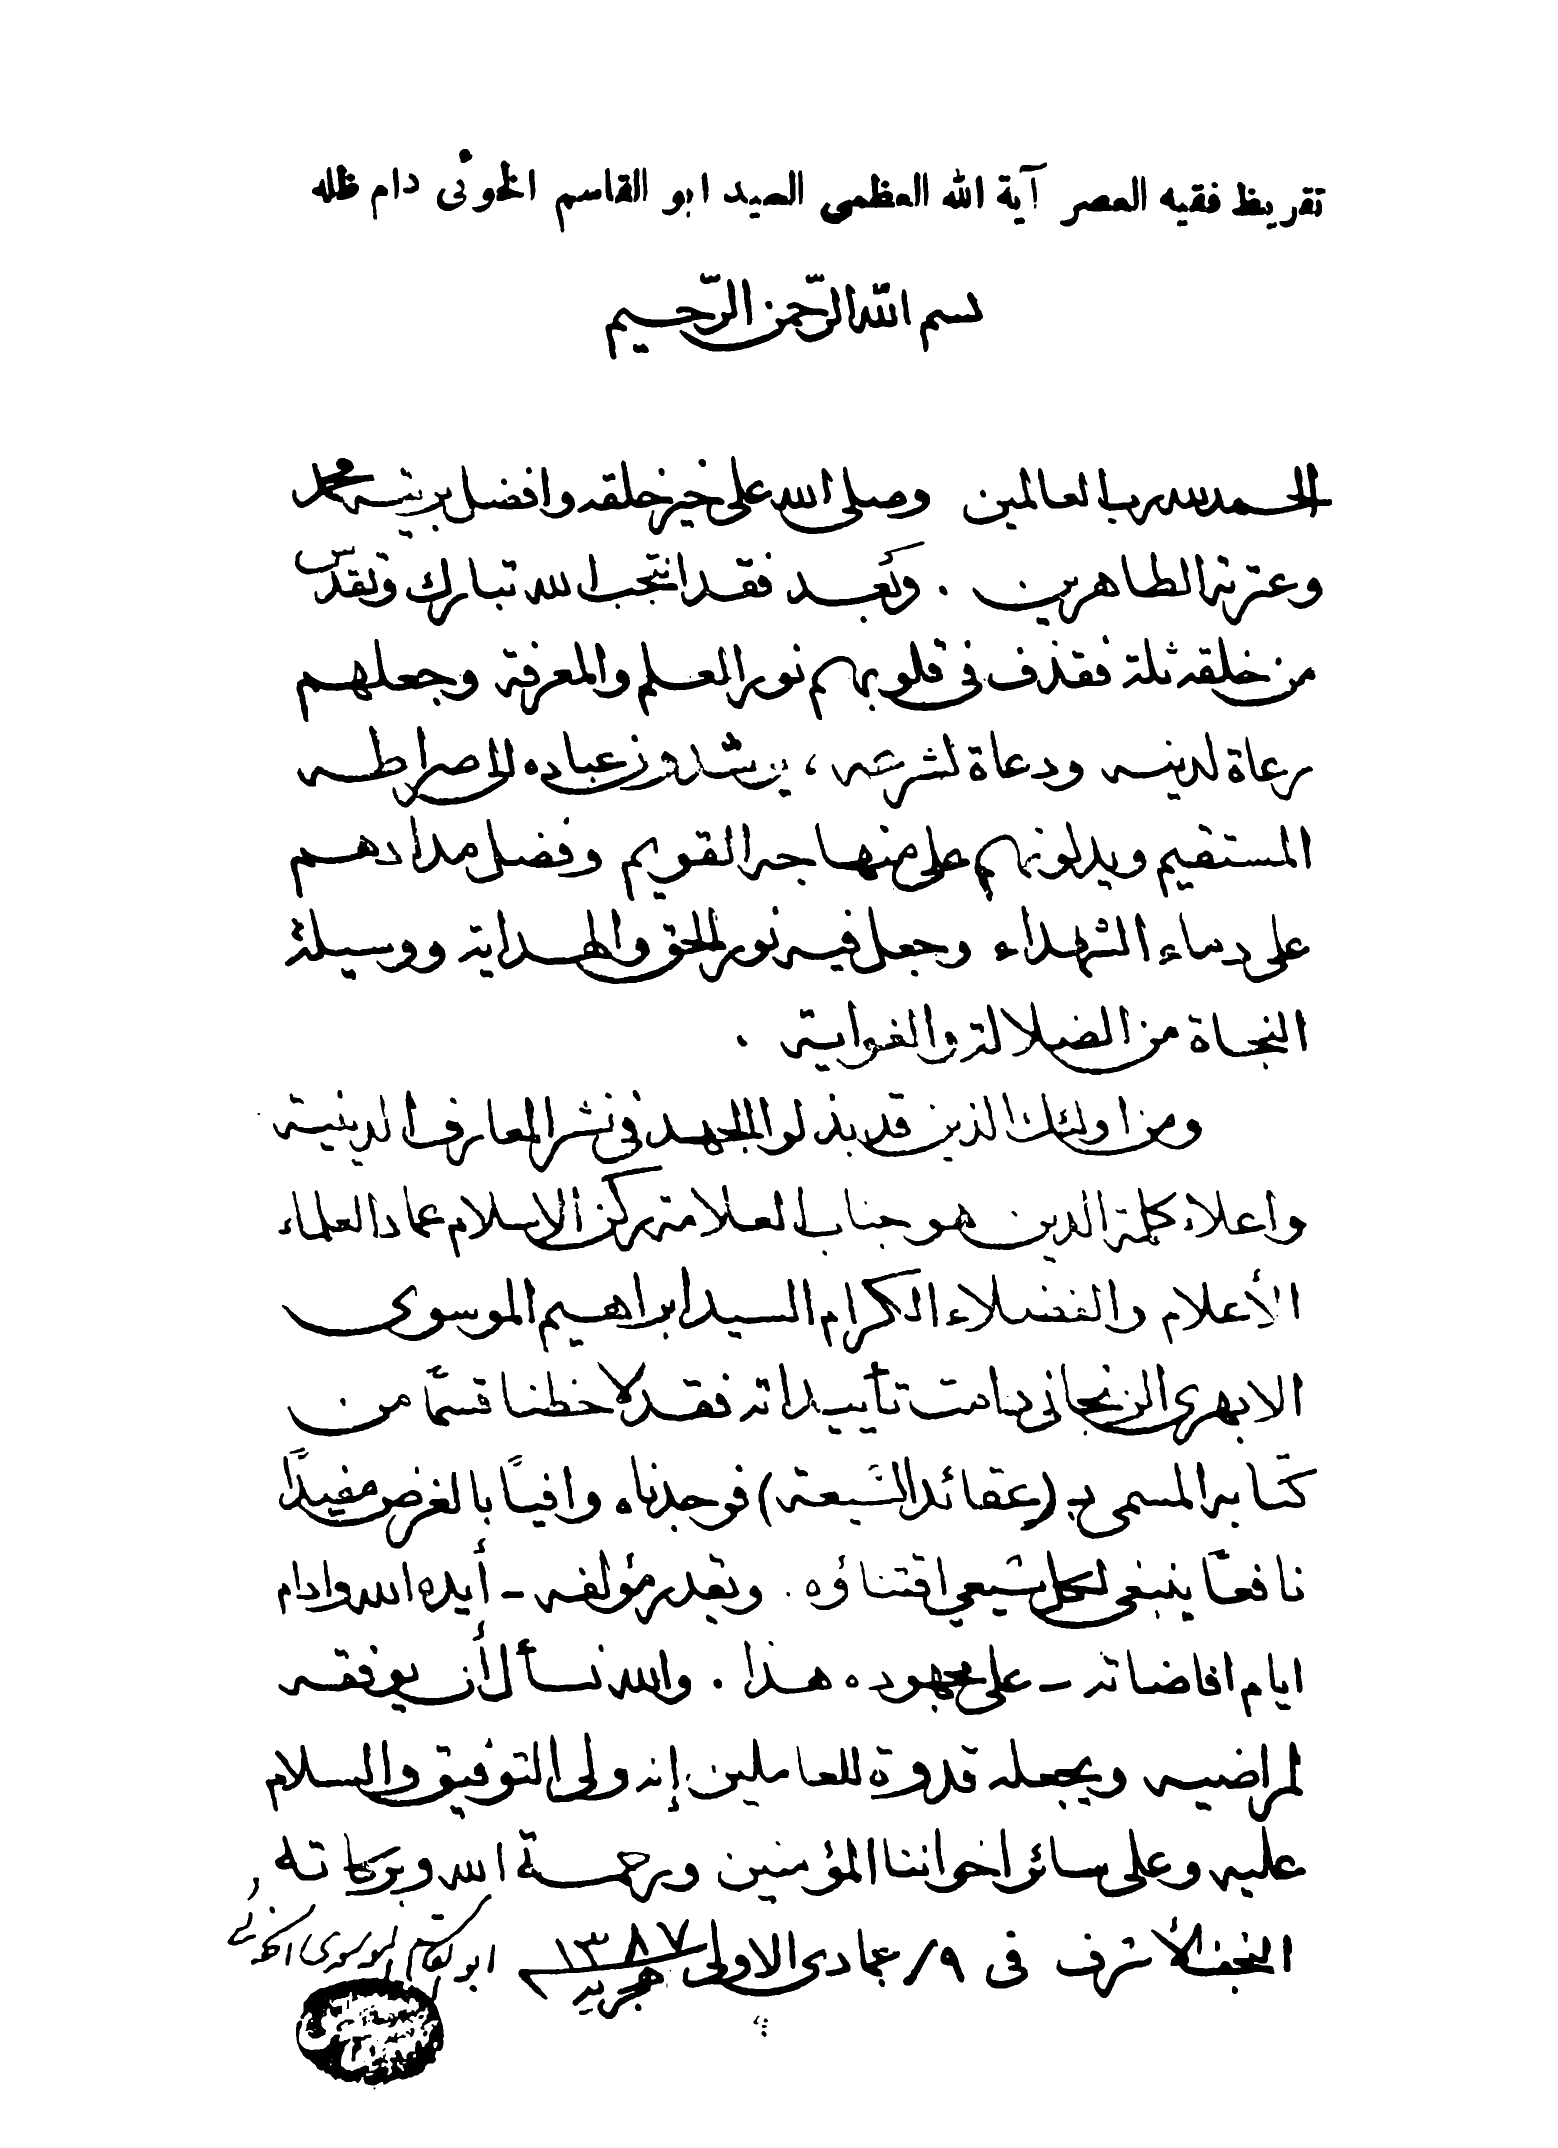 تقريظ فقيه العصر آية الله العظمى السيد ابو القاسم الخوئى دام ظله
بسم الله الرّحمن الرّحيم
الحمد لله رب العالمين وصلى الله على خير خلقه وافضل بريته محمد
وعترته الطاهرين . وبَعد فقد انتجب الله تبارك وتقدس
من خلقه ثلة فقذف فى قلوبهم نور العلم والمعرفة وجعلهم
رعاة لدينه ودعاة لشرعه ، يرشدون عباده إلى صراطه
المستقيم ويدلونهم على منهاجه القويم وفضل مدادهم
على دماء الشهداء وجعل فيه نور الحق والهداية ووسيلة
النجاة من الضلالة والغواية .
ومن اولئك الذين قد بذلوا الجهد فى نشر المعارف الدينية
واعلاء كلمة الدين هو جناب العلامة ركن الاسلام عماد العلماء
الأعلام والفضلاء الكرام السيد ابراهيم الموسوى
الابهرى الزنجانى دامت تأييداته فقد لاحظنا قسمًا من
كتابه المسمى بـ (عقائد الشيعة) فوجدناه وافيًا بالغرض مفيدًا
نافعًا ينبغى لكل شيعي اقتناؤه . ونقدر مؤلفه - أيده الله وادام
ايام افاضاته - على مجهوده هذا . والله نسأل أن يوفقه
لمراضيه ويجعله قدوة للعاملين إنه ولى التوفيق والسلام
عليه وعلى سائر اخواننا المؤمنين ورحمة الله وبركاته
النجف الأشرف فى ٩/ جمادى الاولى ١٣٨٧ هجرية
ابو القاسم الموسوى الخوئى